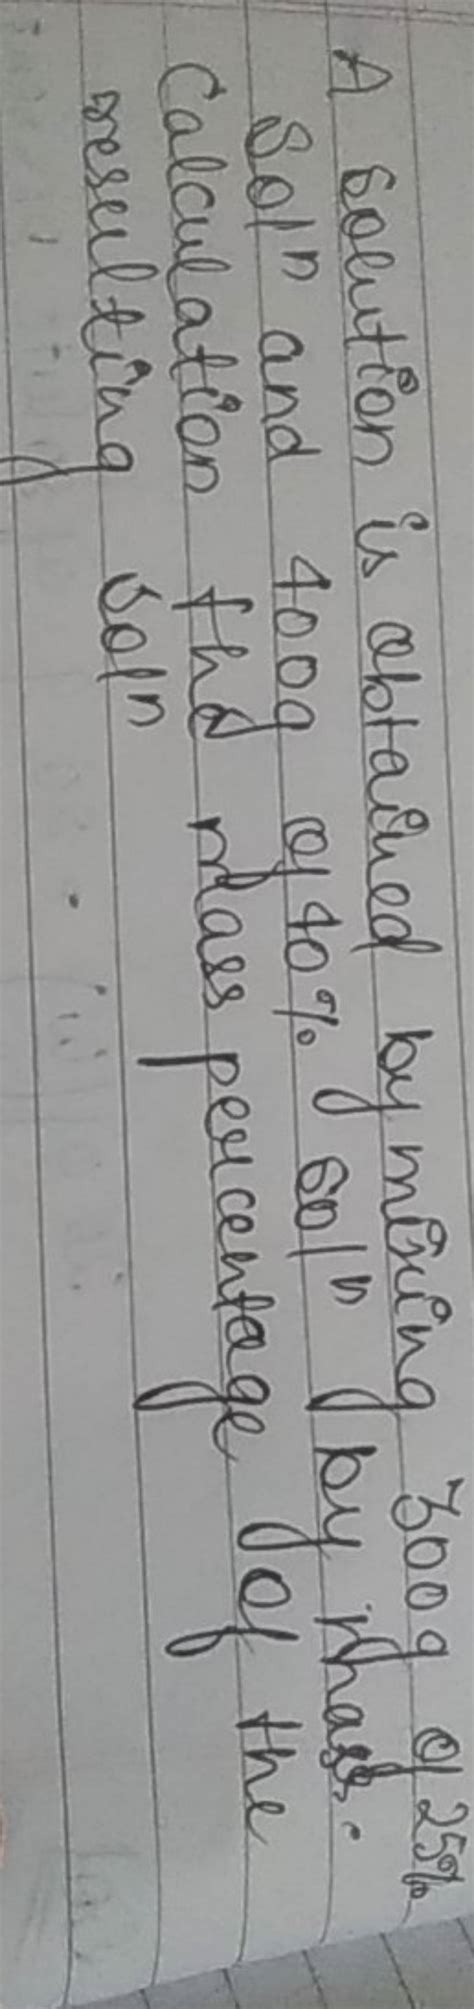 A solution is obtained by mixing 300g of 25%
Sol^n and 400g of 40% sol^n by mass.
Calculation the mass percentage of the
resulting sol^n